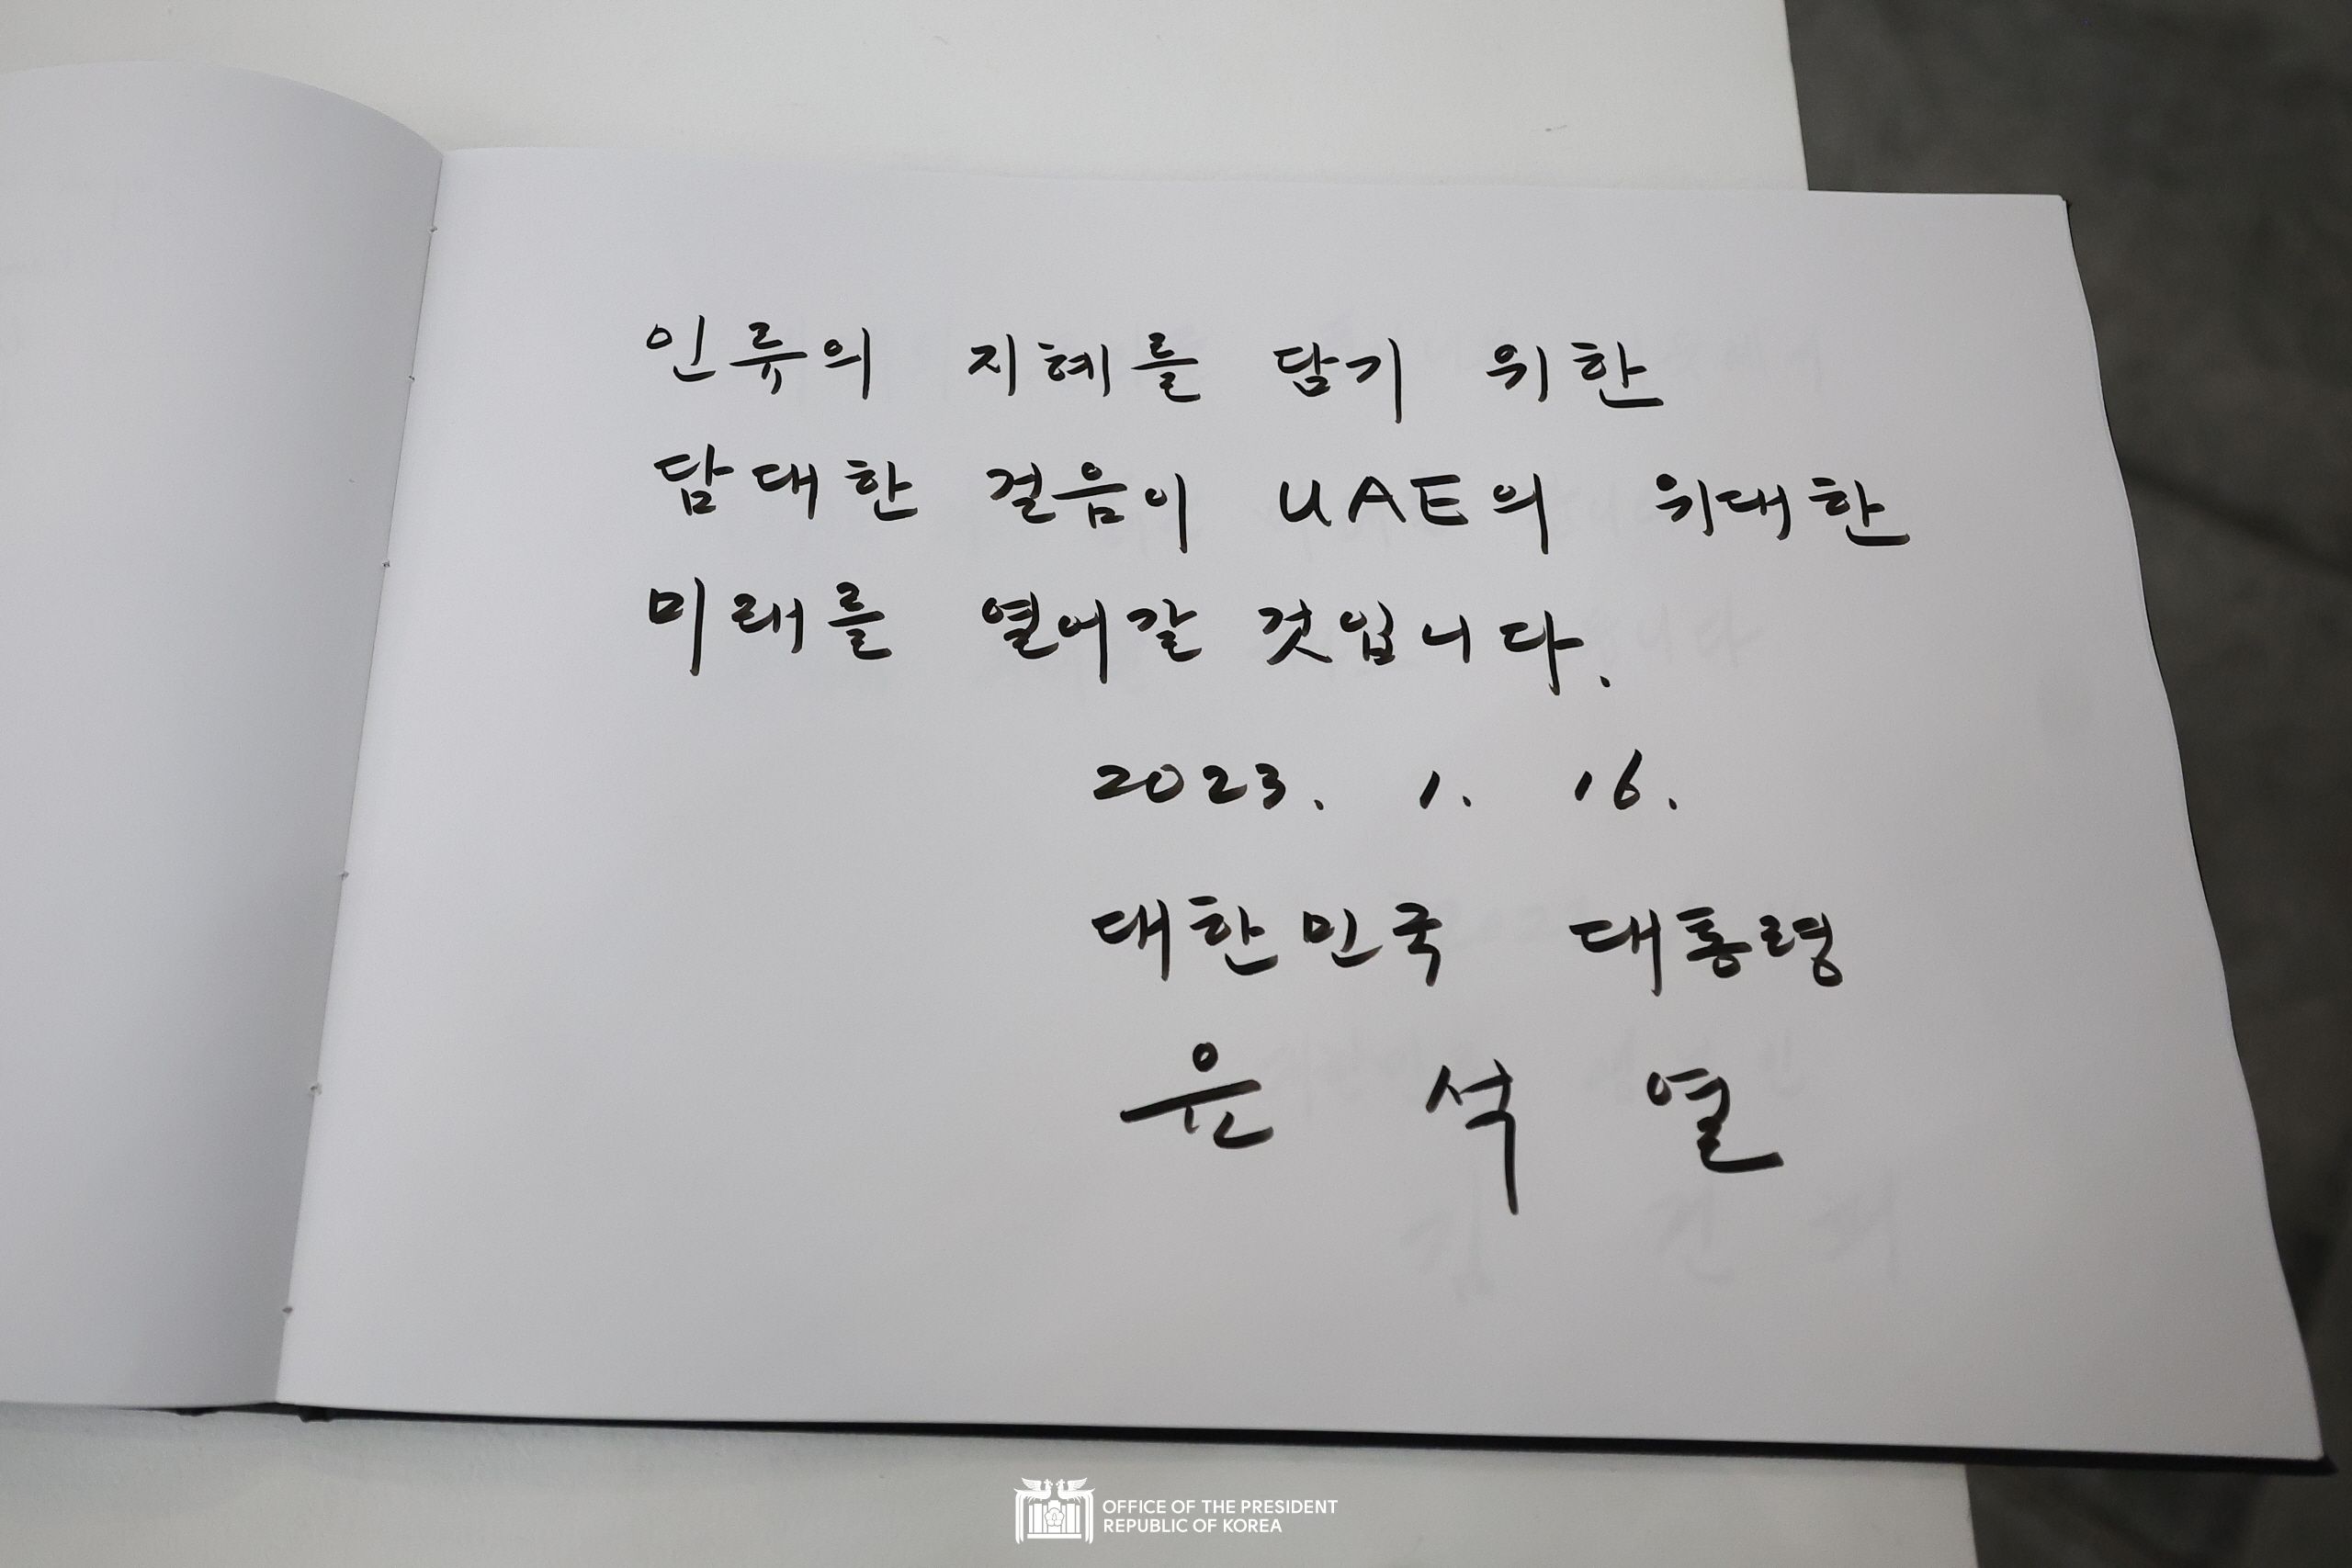 인류의 지혜를 담기 위한
담대한 걸음이 UAE의 위대한
미래를 열어갈 것입니다.
2023. 1. 16.
대한민국 대통령
윤 석 열
OFFICE OF THE PRESIDENT
REPUBLIC OF KOREA